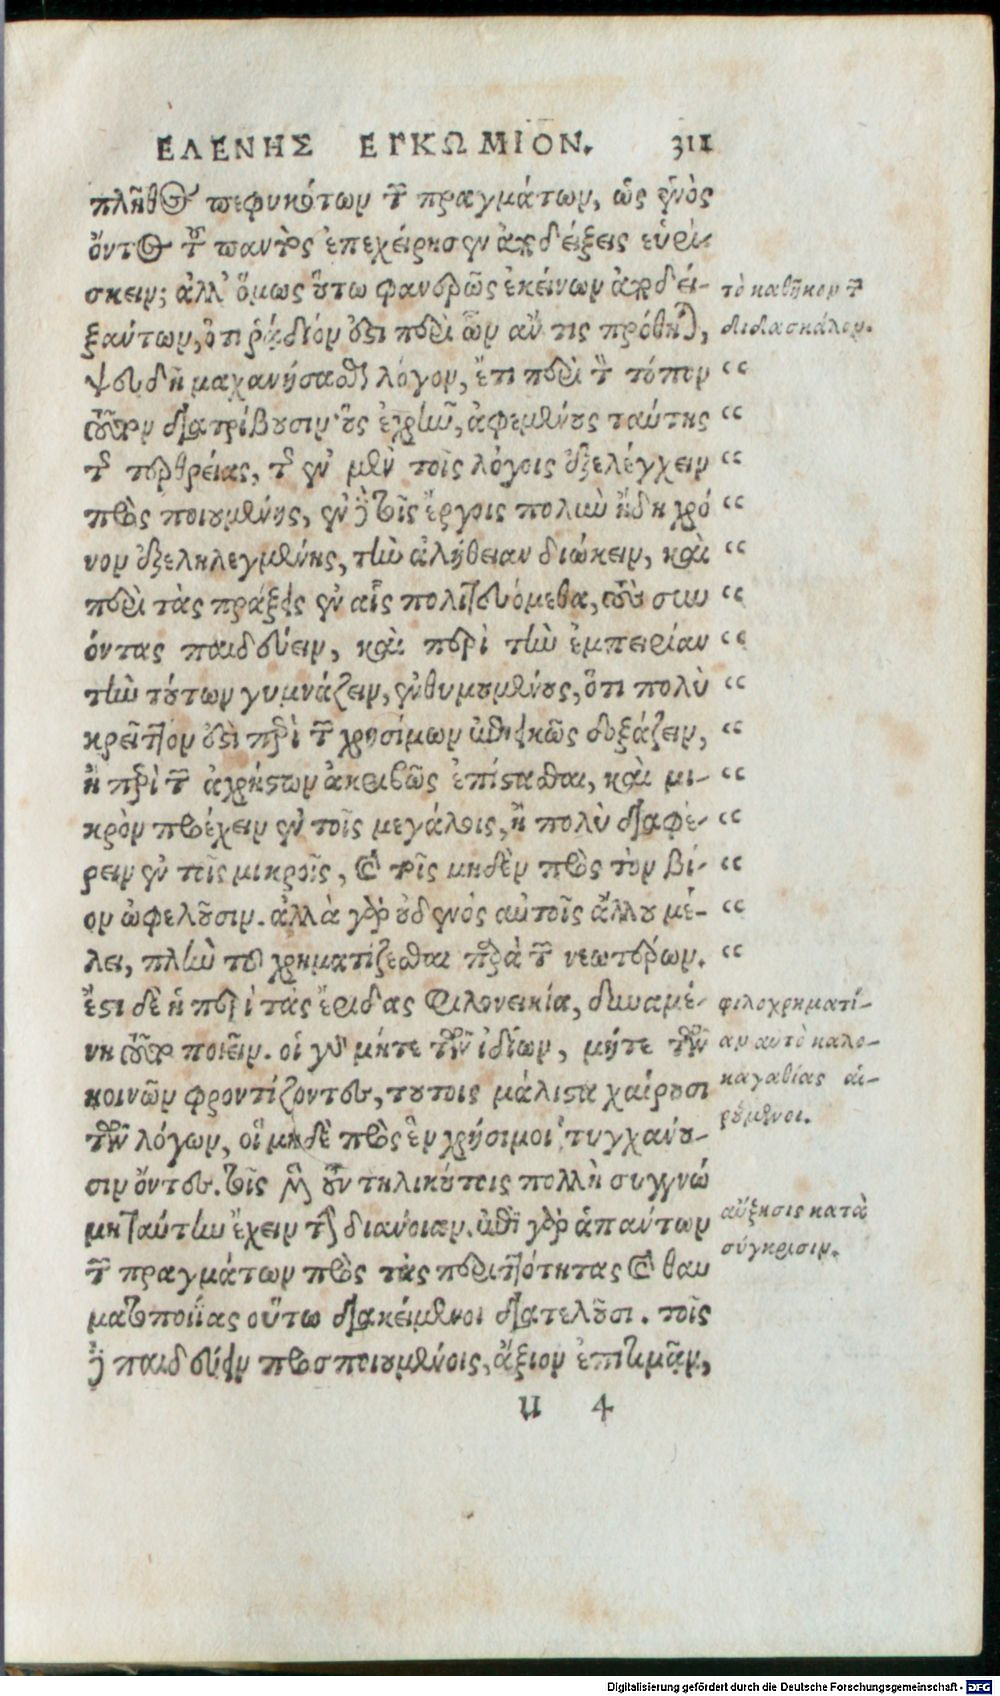 ΕΛΕΝΗΣ ΕΓΚΩΜΙΟΝ. 311
πλῆθος πεφυκότων τῶν πραγμάτων, ὡς ἑνὸς
ὄντος τοῦ παντὸς ἐπεχείρησεν ἀποδείξεις εὑρί-
σκειν; ἀλλ' ὅμως οὕτω φανερῶς ἐκείνων ἀποδει-
ξάντων, ὅτι ῥᾴδιόν ἐστι περὶ ὧν ἄν τις πρόθηται,
ψευδῆ μηχανήσασθαι λόγον, ἔτι περὶ τὸν τόπον
τοῦτον διατρίβουσιν· οὓς ἐχρῆν, ἀφεμένους ταύτης
τῆς τερθρείας, τῆς ἐν μὲν τοῖς λόγοις ἐξελέγχειν
προσποιουμένης, ἐν δὲ τοῖς ἔργοις πολὺν ἤδη χρό
νον ἐξεληλεγμένης, τὴν ἀλήθειαν διώκειν, καὶ
περὶ τὰς πράξεις ἐν αἷς πολιτευόμεθα, τοὺς συν
όντας παιδεύειν, καὶ περὶ τὴν ἐμπειρίαν
τὴν τούτων γυμνάζειν, ἐνθυμουμένους, ὅτι πολὺ
κρεῖττόν ἐστι περὶ τῶν χρησίμων ἐπιεικῶς δοξάζειν,
ἢ περὶ τῶν ἀχρήστων ἀκριβῶς ἐπίστασθαι, καὶ μι-
κρὸν προέχειν ἐν τοῖς μεγάλοις, ἢ πολὺ διαφέ-
ρειν ἐν τοῖς μικροῖς, καὶ τοῖς μηδὲν πρὸς τὸν βί-
ον ὠφελοῦσιν. ἀλλὰ γὰρ οὐδενὸς αὐτοῖς ἄλλου μέ-
λει, πλὴν τοῦ χρηματίζεσθαι παρὰ τῶν νεωτέρων.
ἔστι δὲ ἡ περὶ τὰς ἔριδας φιλονεικία, δυναμέ-
νη τοῦτο ποιεῖν. οἱ γὰρ μήτε τῶν ἰδίων, μήτε τῶν
κοινῶν φροντίζοντες, τούτοις μάλιστα χαίρουσι
τῶν λόγων, οἳ μηδὲ πρὸς ἓν χρήσιμοι τυγχάνου-
σιν ὄντες. τοῖς μὲν οὖν τηλικούτοις πολλὴ συγγνώ
μη ταύτην ἔχειν τὴν διάνοιαν. ἐπὶ γὰρ ἁπάντων
τῶν πραγμάτων πρὸς τὰς περιττότητας καὶ θαυ
ματοποιΐας οὕτω διακείμενοι διατελοῦσι. τοῖς
δὲ παιδεύειν προσποιουμένοις, ἄξιον ἐπιτιμᾶν,
u 4
τὸ καθῆκον τῶν
διδασκάλων.
φιλοχρηματί-
αν αὐτὸ καλο-
καγαθίας αἱ-
ρούμενοι.
αὔξησις κατὰ
σύγκρισιν.
Digitalisierung gefördert durch die Deutsche Forschungsgemeinschaft - DFG